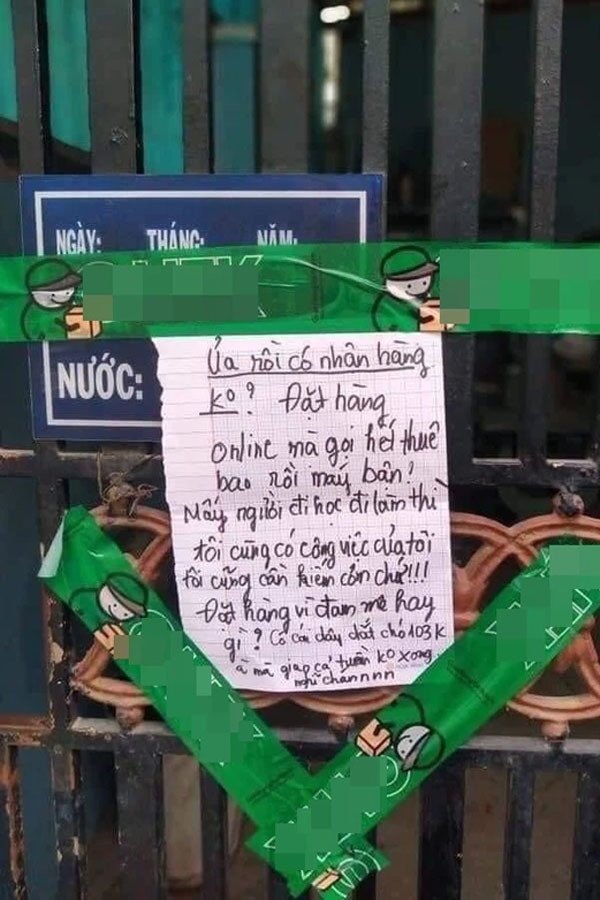 NGÀY: THÁNG: NĂM:
NƯỚC:
Ủa rồi có nhân hàng
ko? Đặt hàng
Online mà gọi hết thuê
bao rồi máy bân!
Mấy người đi học đi làm thì
tôi cũng có công việc của tôi
tôi cũng cần kiếm cơn chứ!!!
Đặt hàng vì đam mê hay
gì? Có cái dây dắt chó 103K
à mà giao cả tuần ko xong.
nghỉ channnn